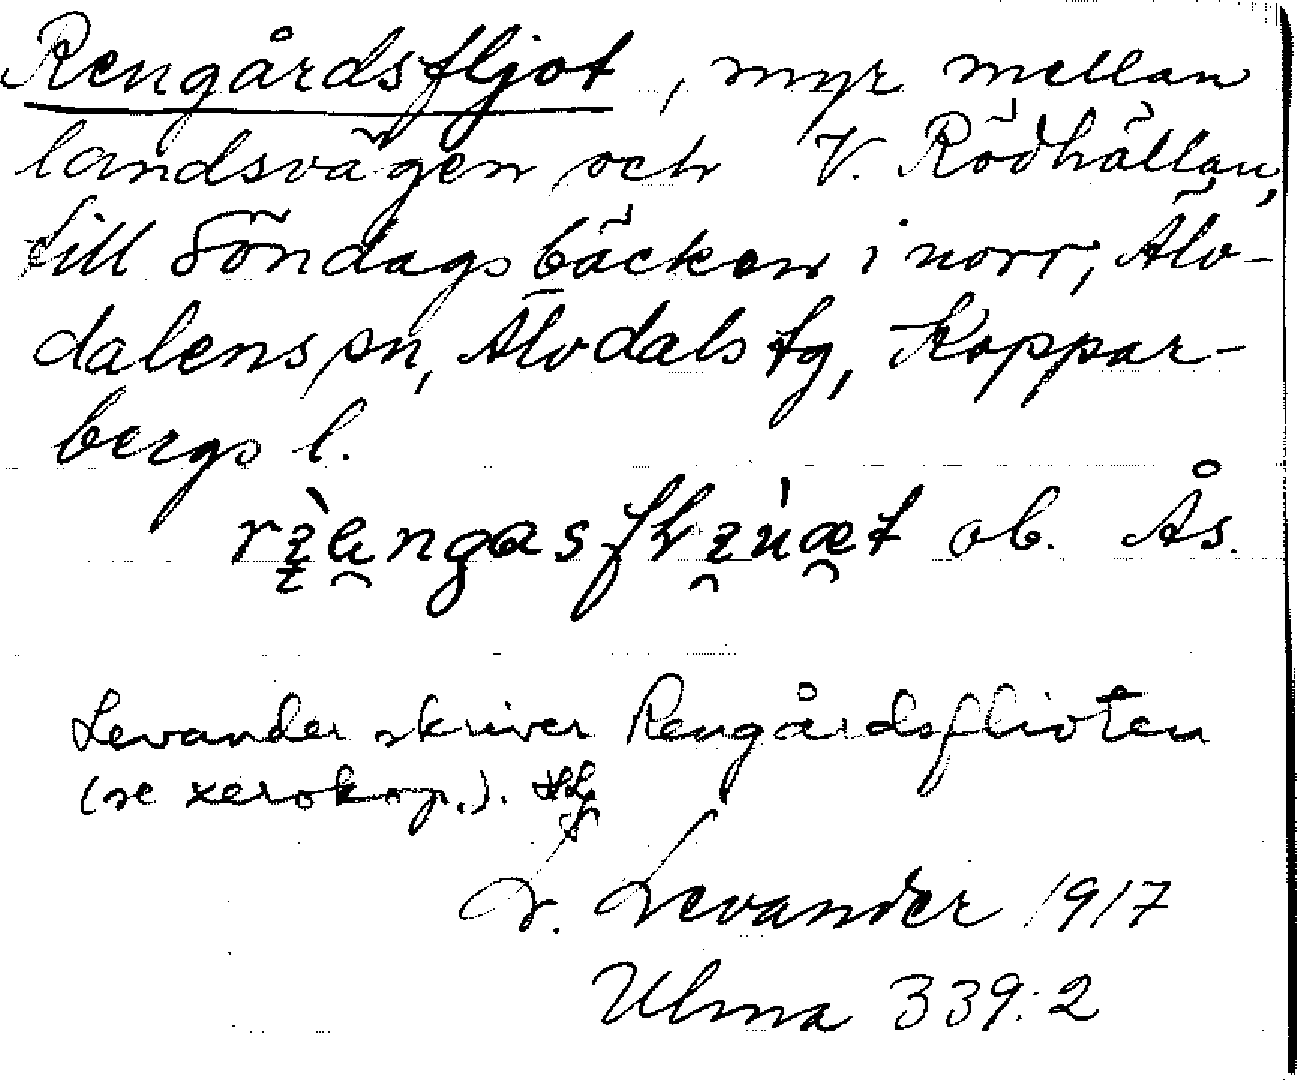 Rengårdsfljot, myr mellan
landsvägen och V. Rödhällan,
till Söndagsbäcken i norr, Älv-
dalens sn, Älvdals tg, Koppar-
bergs l.
ob. Ås.
Levander skriver Rengårdsflioten
(se xerokop.).
L. Levander 1917
Ulma 339:2